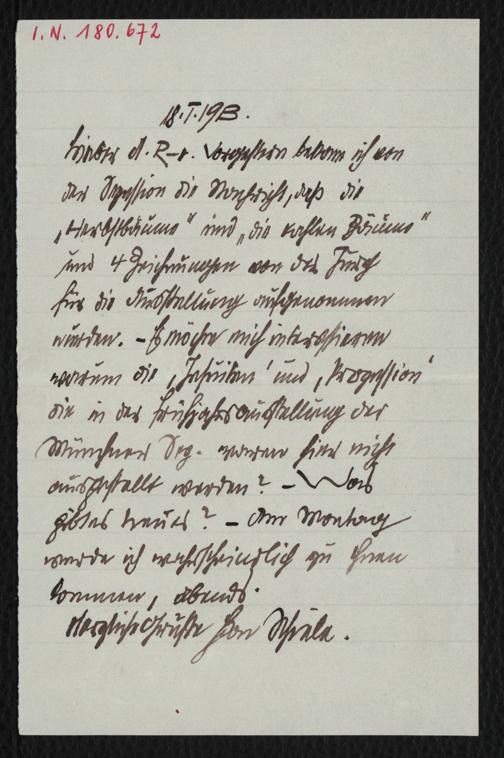 I.N. 180.672
18.I.1913.
Lieber A. R-r. Vorgestern bekam ich von
der Sezession die Nachricht, daß die
„Herbstbäume" und „die kahlen Bäume"
und 4 Zeichnungen von der Jury
für die Ausstellung aufgenommen
wurden. – Es möchte mich interessieren
warum die ‚Jesuiten' und ‚Prozession'
die in der Frühjahrsausstellung der
Münchner Sez. waren hier nicht
ausgestellt werden? – Was
gibt es neues? – Am Montag
werde ich wahrscheinlich zu Ihnen
kommen, abends.
Herzliche Grüße Egon Schiele.